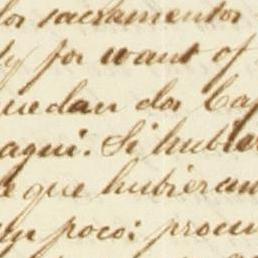 los sacramentos
ly for want of
quedan dos Cap
aqui. Si hubier
e que hubieran
un poco: procu